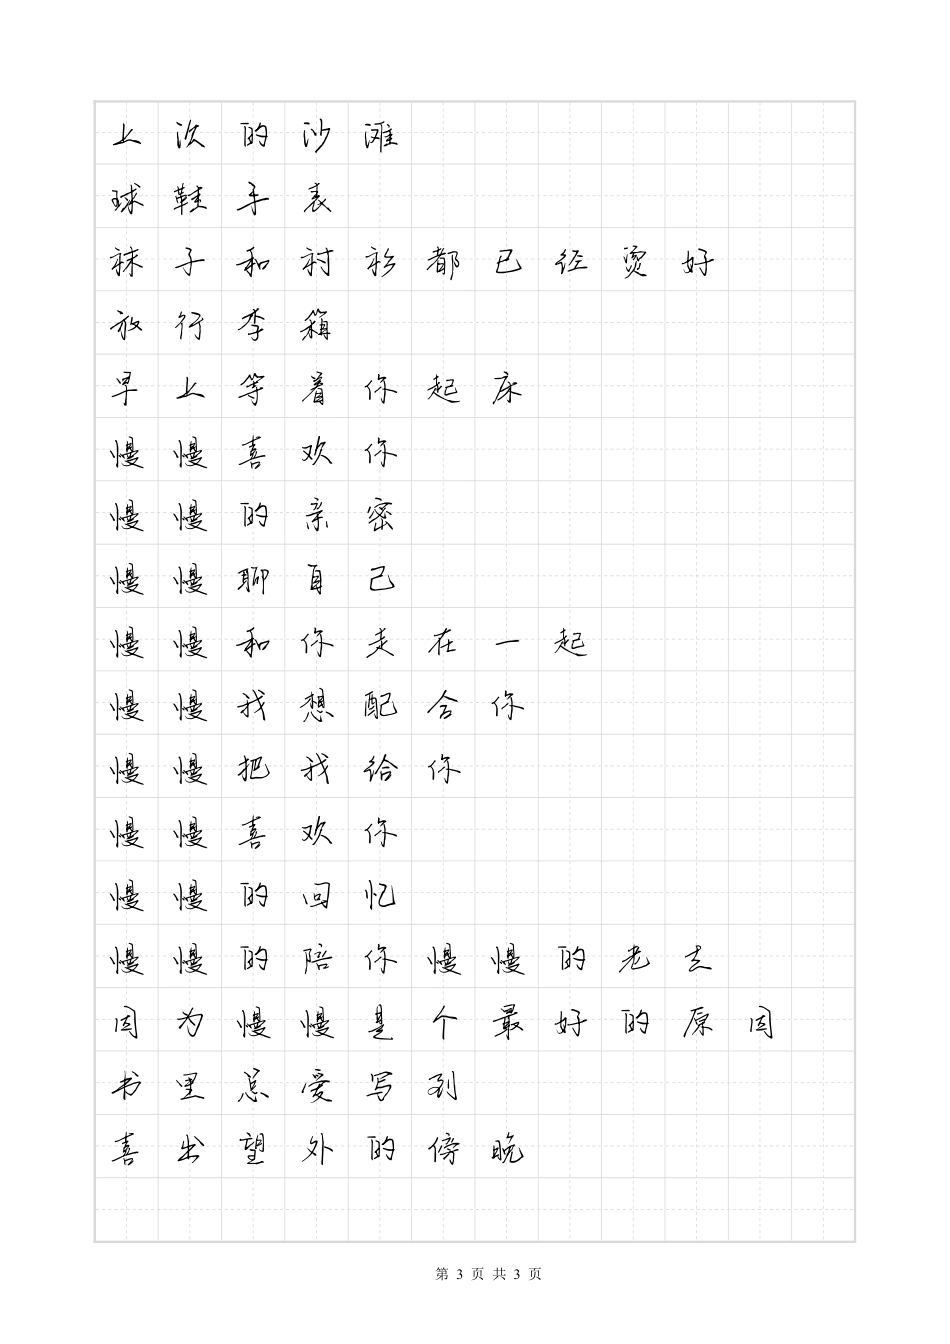 上次的沙滩
球鞋手表
袜子和衬衫都已经烫好
放行李箱
早上等着你起床
慢慢喜欢你
慢慢的亲密
慢慢聊自己
慢慢和你走在一起
慢慢我想配合你
慢慢把我给你
慢慢喜欢你
慢慢的回忆
慢慢的陪你慢慢的老去
因为慢慢是个最好的原因
书里总爱写到
喜出望外的傍晚
第 3 页 共 3 页